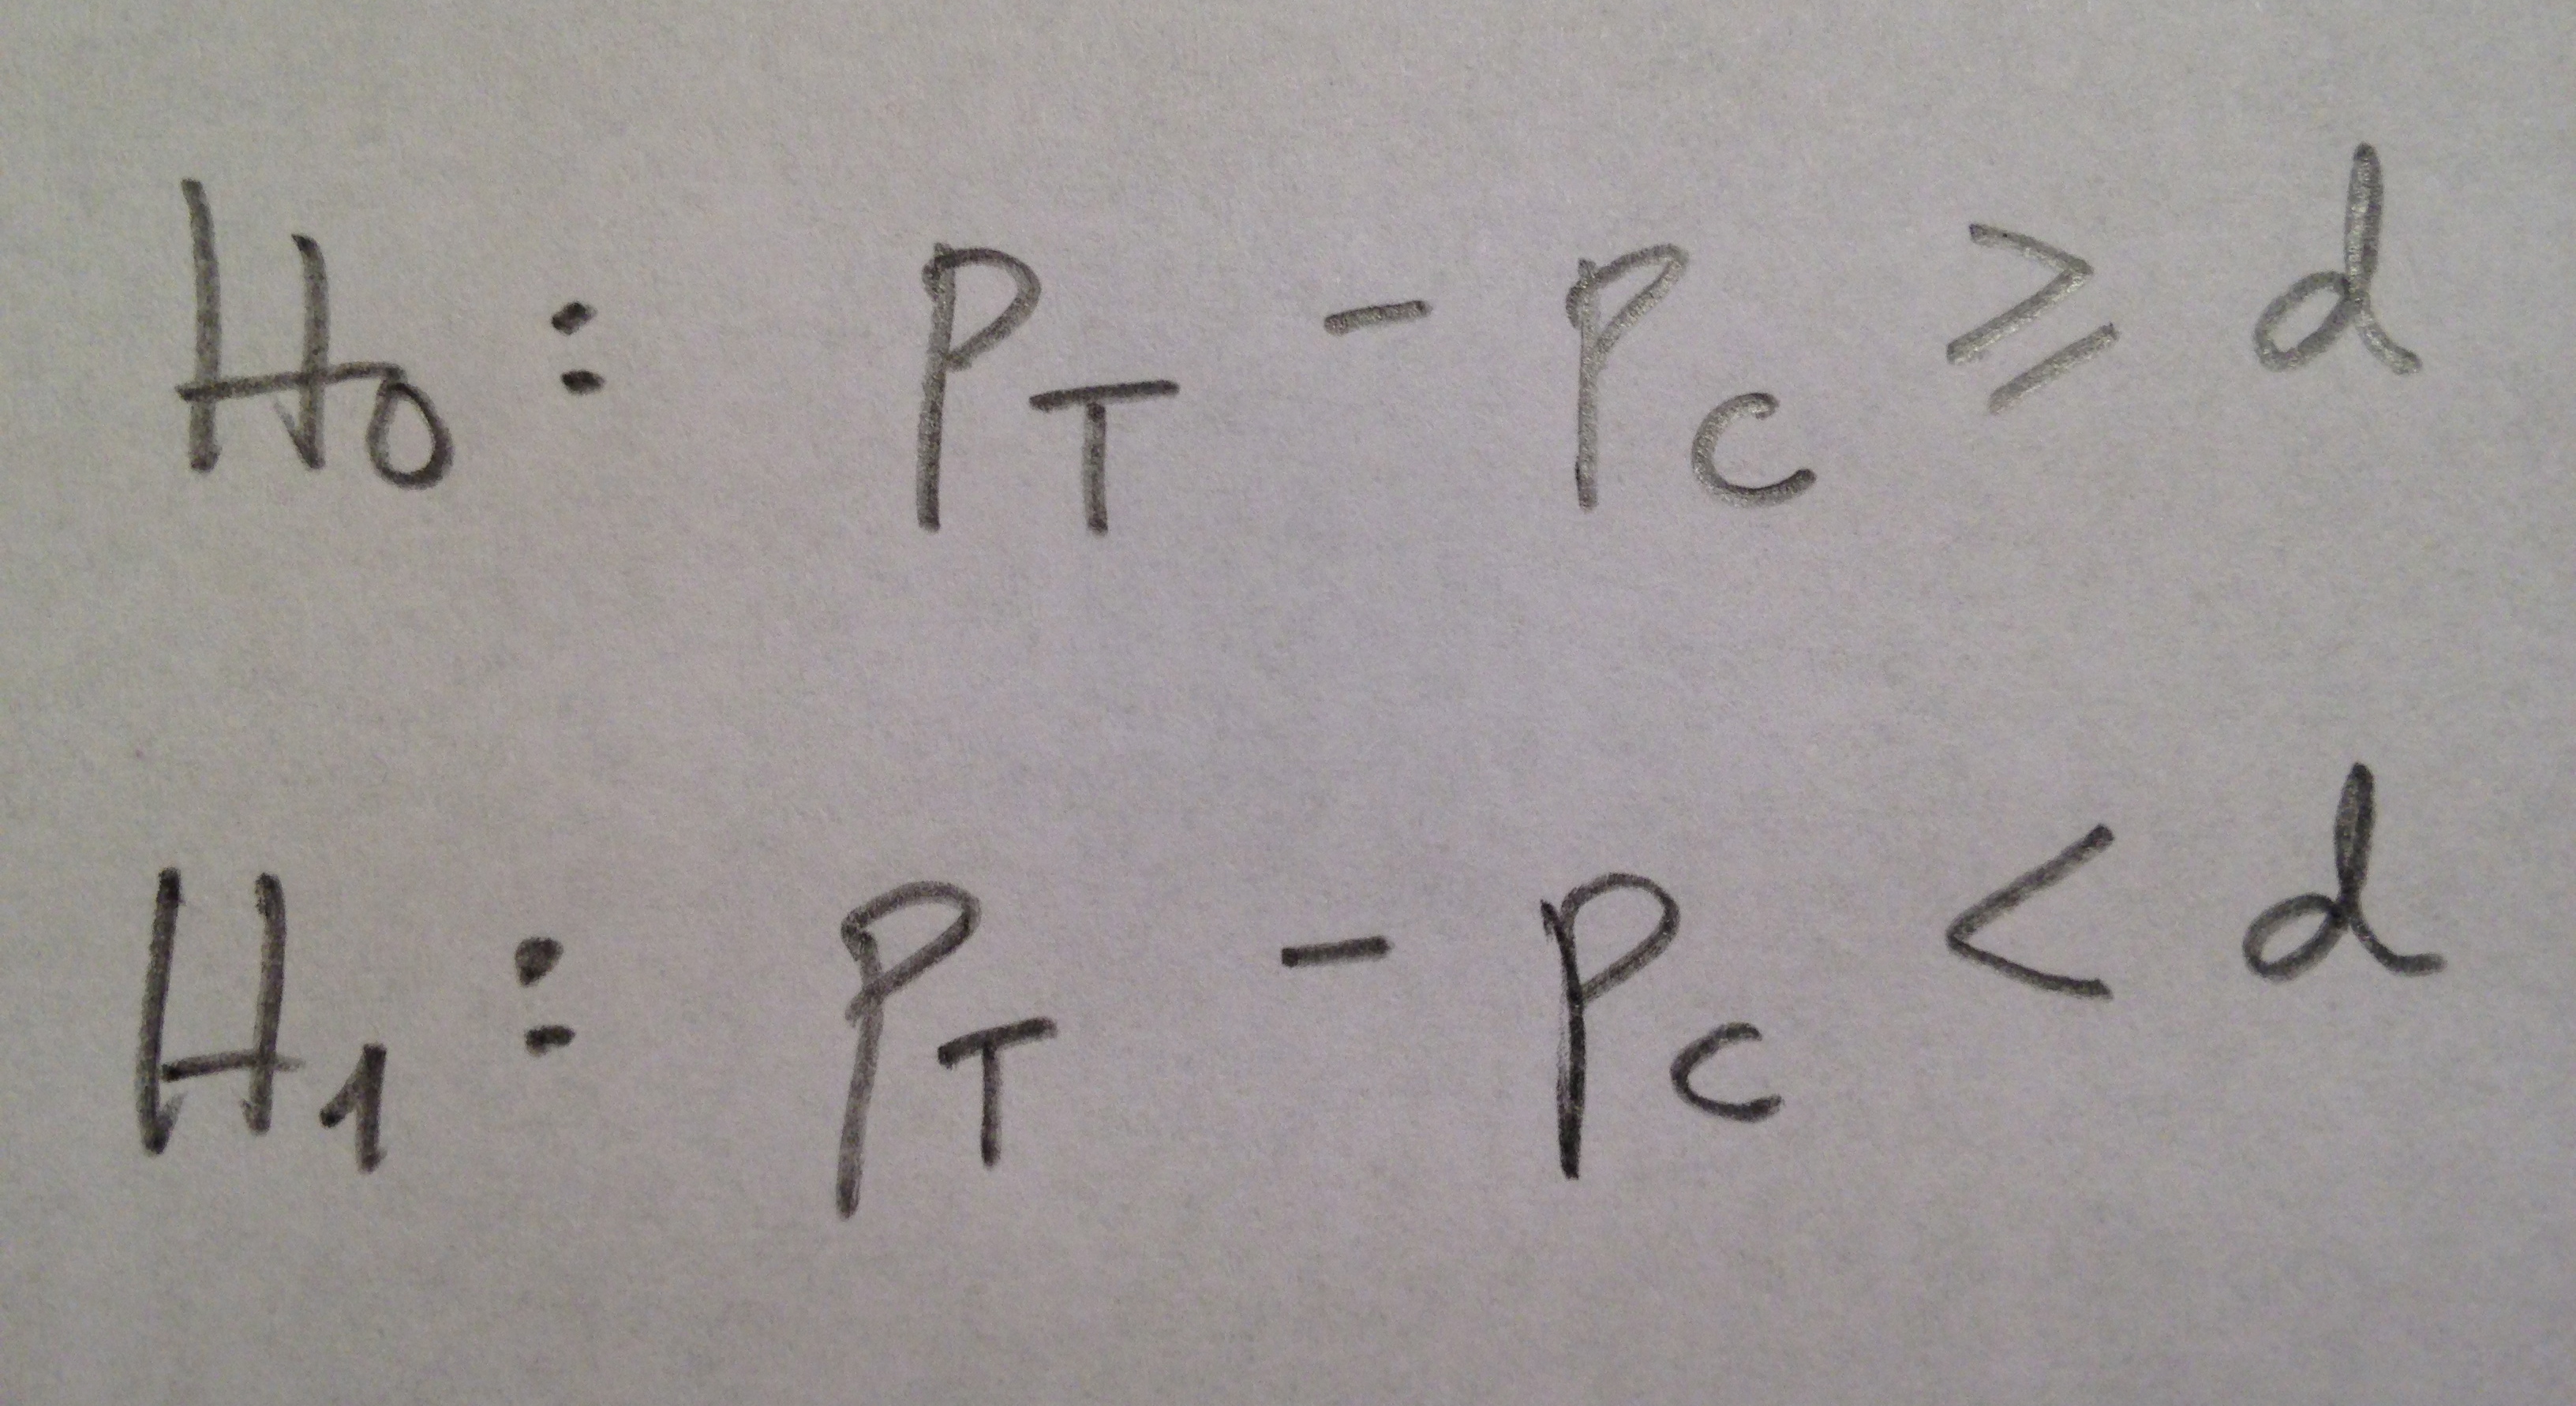 H₀: P_T - P_C ⩾ d
H₁: P_T - P_C < d